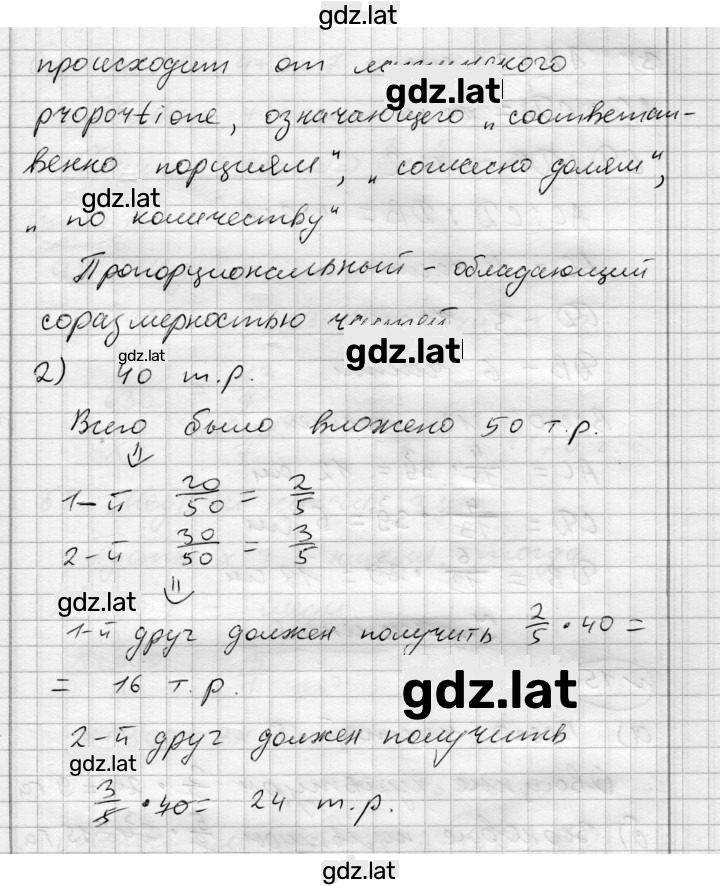 gdz.lat
происходит от латинского
gdz.lat
proportione, означающего „соответст-
венно порциям“, „согласно долям“,
gdz.lat
„по количеству“
Пропорциональный - обладающий
соразмерностью частей
gdz.lat
gdz.lat
2) 40 т.р.
Всего было вложено 50 т.р.
⇓
1-й 20/50 = 2/5
2-й 30/50 = 3/5
⇓
gdz.lat
1-й друг должен получить 2/5 · 40 =
= 16 т.р.
gdz.lat
2-й друг должен получить
gdz.lat
3/5 · 40 = 24 т.р.
gdz.lat